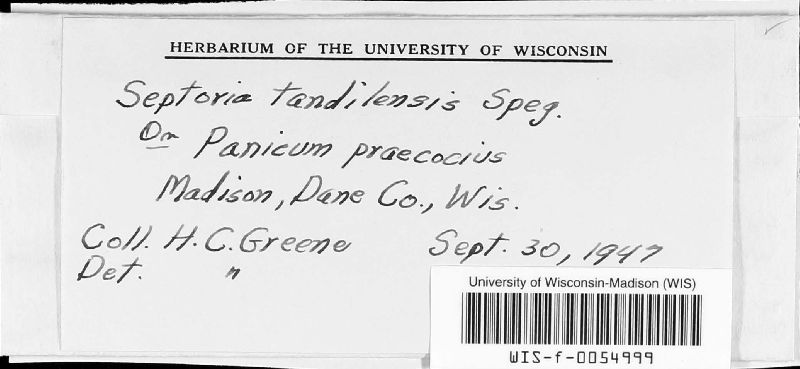 HERBARIUM OF THE UNIVERSITY OF WISCONSIN
Septoria tandilensis Speg.
On Panicum praecocius
Madison, Dane Co., Wis.
Coll. H. C. Greene Sept. 30, 1947
Det. "
University of Wisconsin-Madison (WIS)
WIS-f-0054999